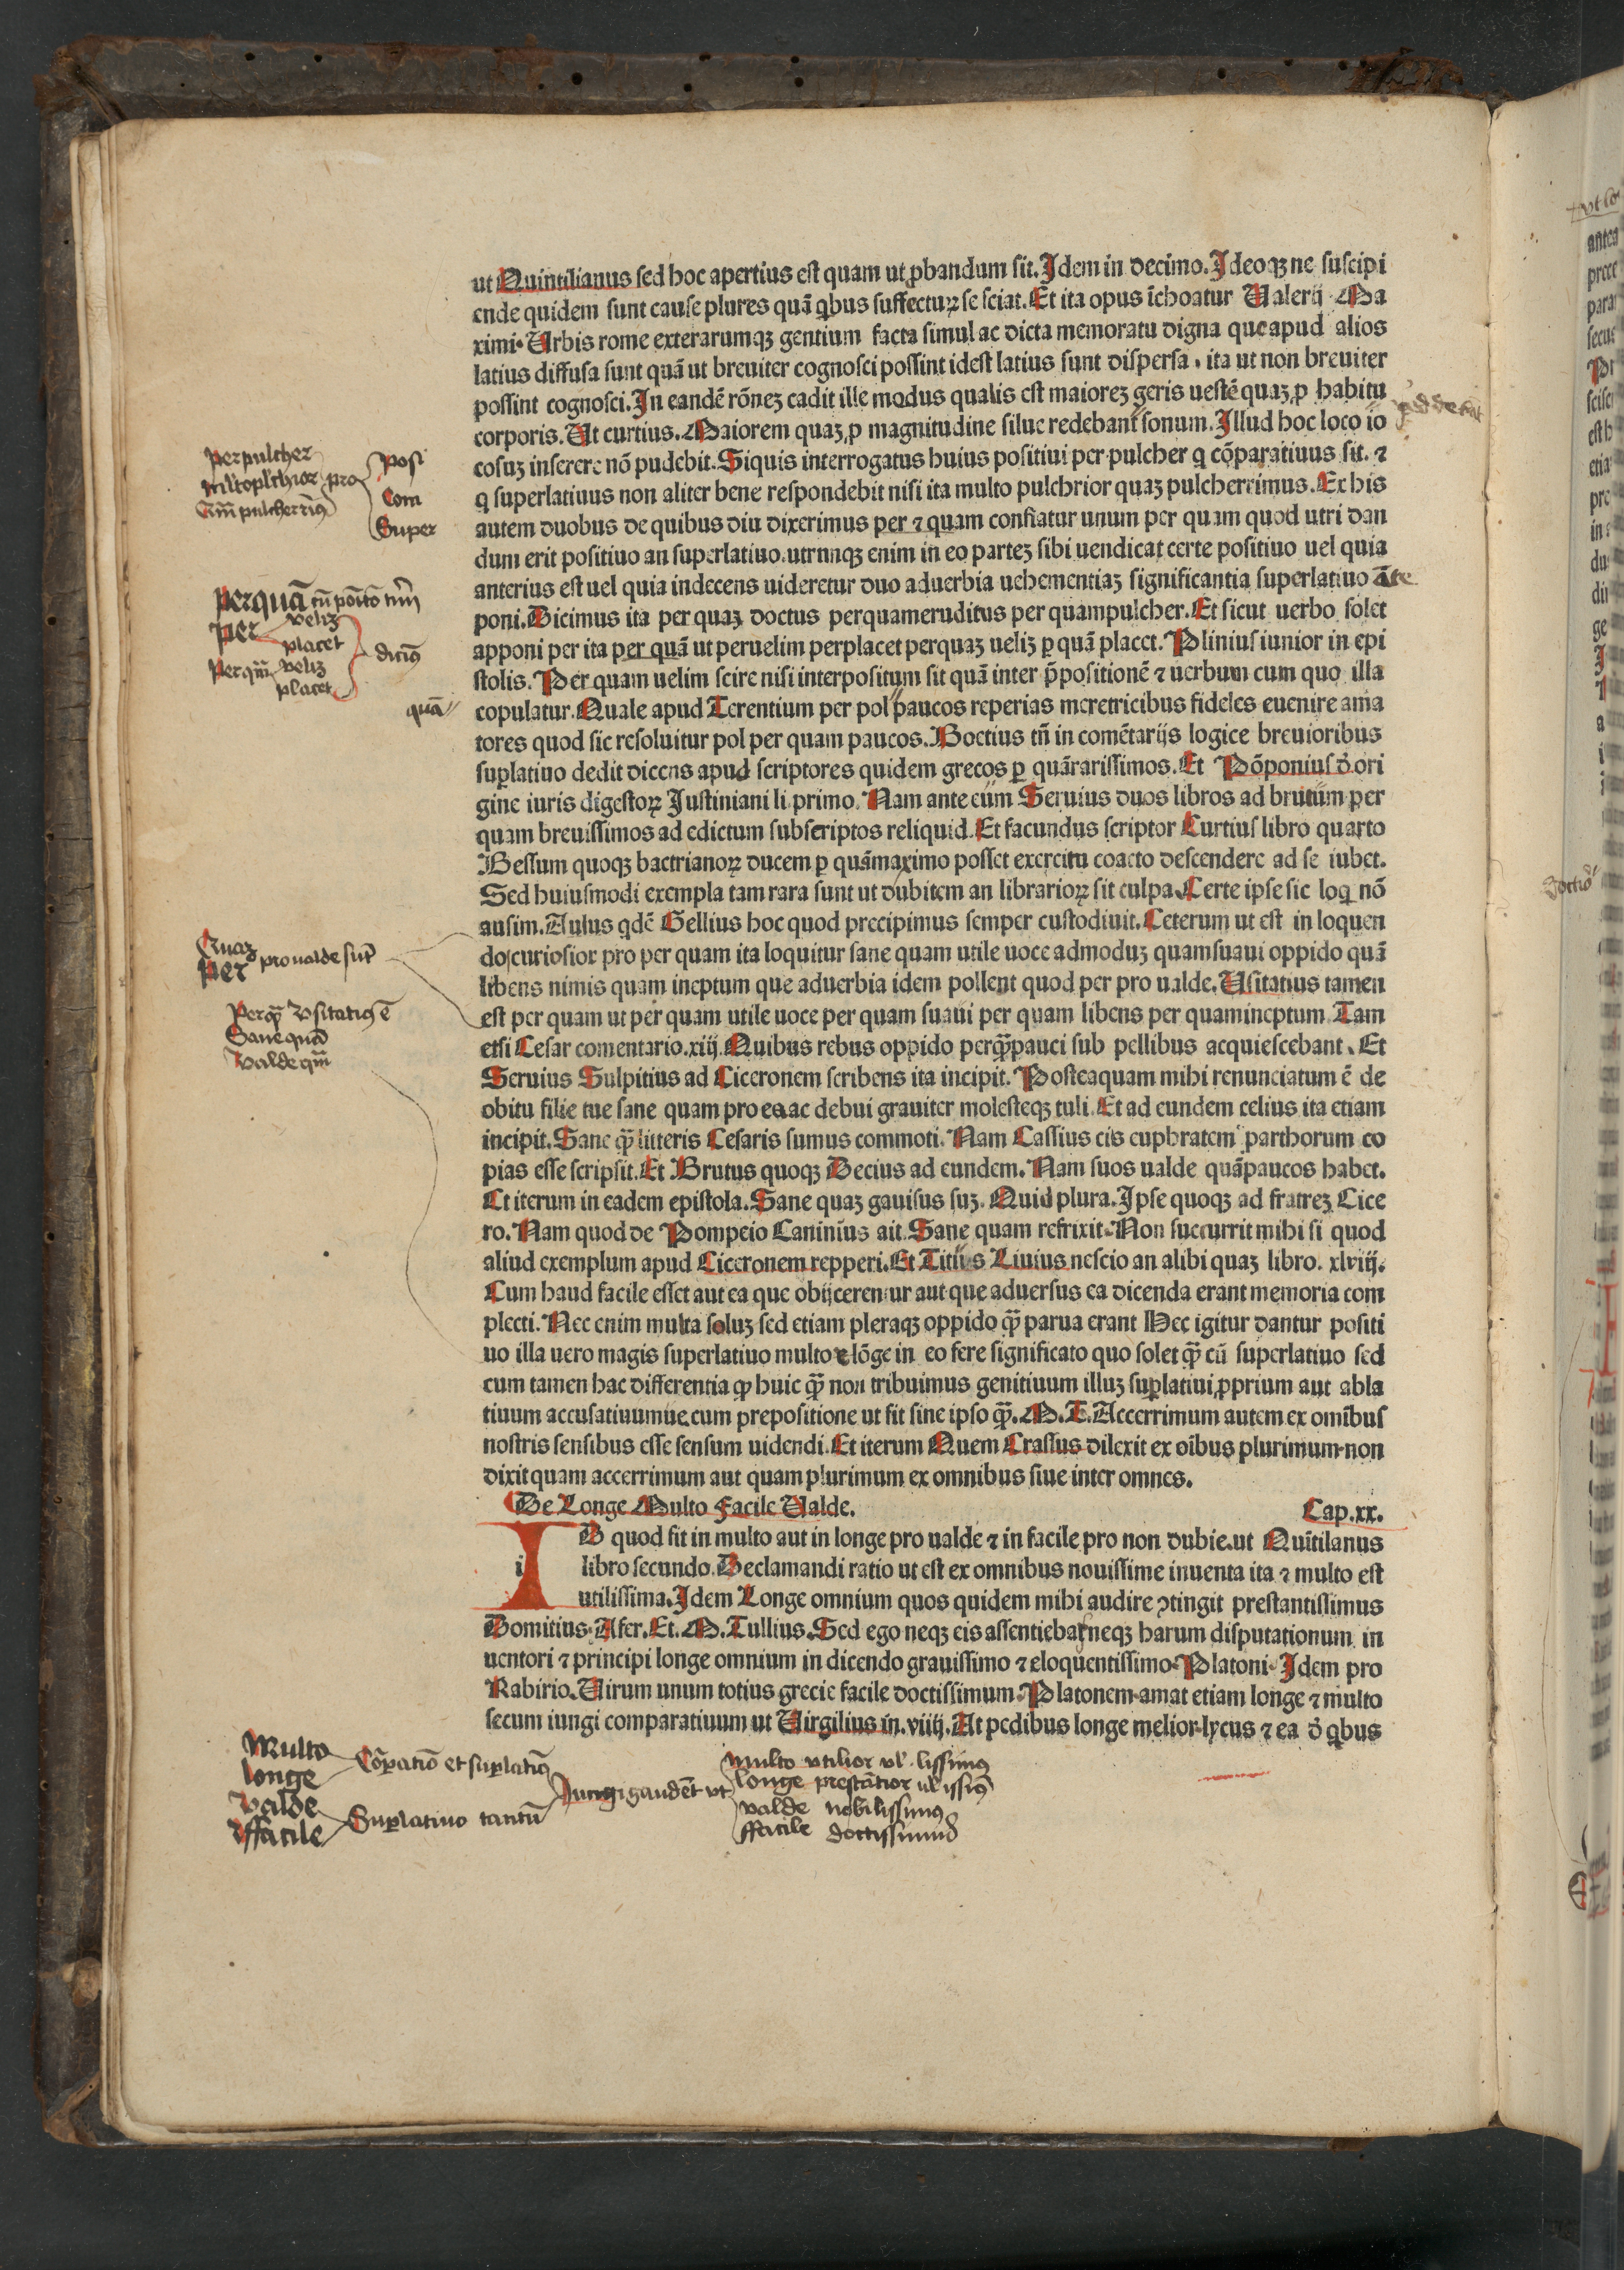 ut Quintilianus sed hoc apertius est quam ut ꝓbandum sit. Idem in decimo. Ideoqꝫ ne suscipi
ende quidem sunt cause plures quã qbus suffecturꝝ se sciat. Et ita opus ĩchoatur Valerij Ma
ximi. Urbis rome exterarumqꝫ gentium facta simul ac dicta memoratu digna que apud alios
latius diffusa sunt quã ut breuiter cognosci possint idest latius sunt dispersa. ita ut non breuiter
possint cognosci. In eandẽ rõneꝫ cadit ille modus qualis est maioreꝫ geris uestẽ quaꝫ ꝓ habitu
corporis. Ut curtius. Maiorem quaꝫ ꝓ magnitudine silue redebant sonum. Illud hoc loco io
cosuꝫ inserere nõ pudebit. Siquis interrogatus huius positiui per pulcher q cõparatiuus sit. ⁊
q superlatiuus non aliter bene respondebit nisi ita multo pulchrior quaꝫ pulcherrimus. Ex his
autem duobus de quibus diu dixerimus per ⁊ quam conflatur unum per quam quod utri dan
dum erit positiuo an superlatiuo. utrunqꝫ enim in eo parteꝫ sibi uendicat certe positiuo uel quia
anterius est uel quia indecens uideretur duo aduerbia uehementiaꝫ significantia superlatiuo ãte
poni. Dicimus ita per quaꝫ doctus perquameruditus per quampulcher. Et sicut uerbo solet
apponi per ita per quã ut peruelim perplacet perquaꝫ ueliꝫ ꝑ quã placet. Plinius iunior in epi
stolis. Per quam uelim scire nisi interpositum sit quã inter p̃positionẽ ⁊ uerbum cum quo illa
copulatur. Quale apud Terentium per pol paucos reperias meretricibus fideles euenire ama
tores quod sic resoluitur pol per quam paucos. Boetius tñ in comẽtarijs logice breuioribus
suꝑlatiuo dedit dicens apud scriptores quidem grecos ꝑ quãrarissimos. Et Põponius õ ori
gine iuris digestoꝝ Iustiniani li. primo. Nam ante eum Seruius duos libros ad brutum per
quam breuissimos ad edictum subscriptos reliquid. Et facundus scriptor Curtius libro quarto
Bessum quoqꝫ bactrianoꝝ ducem ꝑ quãmaximo posset exercitu coacto descendere ad se iubet.
Sed huiusmodi exempla tam rara sunt ut dubitem an librarioꝝ sit culpa. Certe ipse sic loq nõ
ausim. Aulus qdẽ Gellius hoc quod precipimus semper custodiuit. Ceterum ut est in loquen
do curiosior pro per quam ita loquitur sane quam utile uoce admoduꝫ quamsuaui oppido quã
libens nimis quam ineptum que aduerbia idem pollent quod per pro ualde. Usitatius tamen
est per quam ut per quam utile uoce per quam suaui per quam libens per quamineptum Tam
etsi Cesar comentario.xiij. Quibus rebus oppido perqꝫ̃pauci sub pellibus acquiescebant. Et
Seruius Sulpitius ad Ciceronem scribens ita incipit. Posteaquam mihi renunciatum ẽ de
obitu filie tue sane quam pro eo ac debui grauiter molesteqꝫ tuli. Et ad eundem celius ita etiam
incipit. Sane qꝫ̃ litteris Cesaris sumus commoti. Nam Cassius cis euphratem parthorum co
pias esse scripsit. Et Brutus quoqꝫ Decius ad eundem. Nam suos ualde quãpaucos habet.
Et iterum in eadem epistola. Sane quaꝫ gauisus suꝫ. Quid plura. Ipse quoqꝫ ad fratreꝫ Cice
ro. Nam quod de Pompeio Caninius ait. Sane quam refrixit. Non succurrit mihi si quod
aliud exemplum apud Ciceronem repperi. Et Titius Liuius nescio an alibi quaꝫ libro. xlviij.
Cum haud facile esset aut ea que obijcerentur aut que aduersus ea dicenda erant memoria com
plecti. Nec enim multa soluꝫ sed etiam pleraqꝫ oppido qꝫ̃ parua erant Hec igitur dantur positi
uo illa uero magis superlatiuo multo ⁊ lõge in eo fere significato quo solet qꝫ̃ cũ superlatiuo sed
cum tamen hac differentia ꝙ huic qꝫ̃ non tribuimus genitiuum illuꝫ suꝑlatiui ꝓprium aut abla
tiuum accusatiuumue cum prepositione ut fit sine ipso qꝫ̃. M. T. Accerrimum autem ex omĩbus
nostris sensibus esse sensum uidendi. Et iterum Quem Crassus dilexit ex oĩbus plurimum non
dixit quam accerrimum aut quam plurimum ex omnibus siue inter omnes.
De Longe Multo Facile Valde. Cap.xx.
I i D quod fit in multo aut in longe pro ualde ⁊ in facile pro non dubie. ut Quĩtilanus
libro secundo. Declamandi ratio ut est ex omnibus nouissime inuenta ita ⁊ multo est
utilissima. Idem Longe omnium quos quidem mihi audire ↄtingit prestantissimus
Domitius Afer. Et. M. Tullius. Sed ego neqꝫ eis assentiebar neqꝫ harum disputationum in
uentori ⁊ principi longe omnium in dicendo grauissimo ⁊ eloquentissimo Platoni. Idem pro
Rabirio. Uirum unum totius grecie facile doctissimum Platonem amat etiam longe ⁊ multo
secum iungi comparatiuum ut Uirgilius in.viiij. At pedibus longe melior lycus ⁊ ea õ qbus
perpulcher
pro
Posi
Com
Super
perquã
per
veliꝫ
placet
Perqm̃ veliꝫ
placet
quã
Quaꝫ
Per
pro ualde
Sane quã
Valde qm̃
Multo
longe
valde
ffacile
Cõꝑatiõ et suꝑlatiũ
Suꝑlatiuo tantũ
Iungi gaudẽt vt
multo vtilior vl̃ lissimꝰ
longe prestãtior
valde nobilissimꝰ
ffacile doctissimus